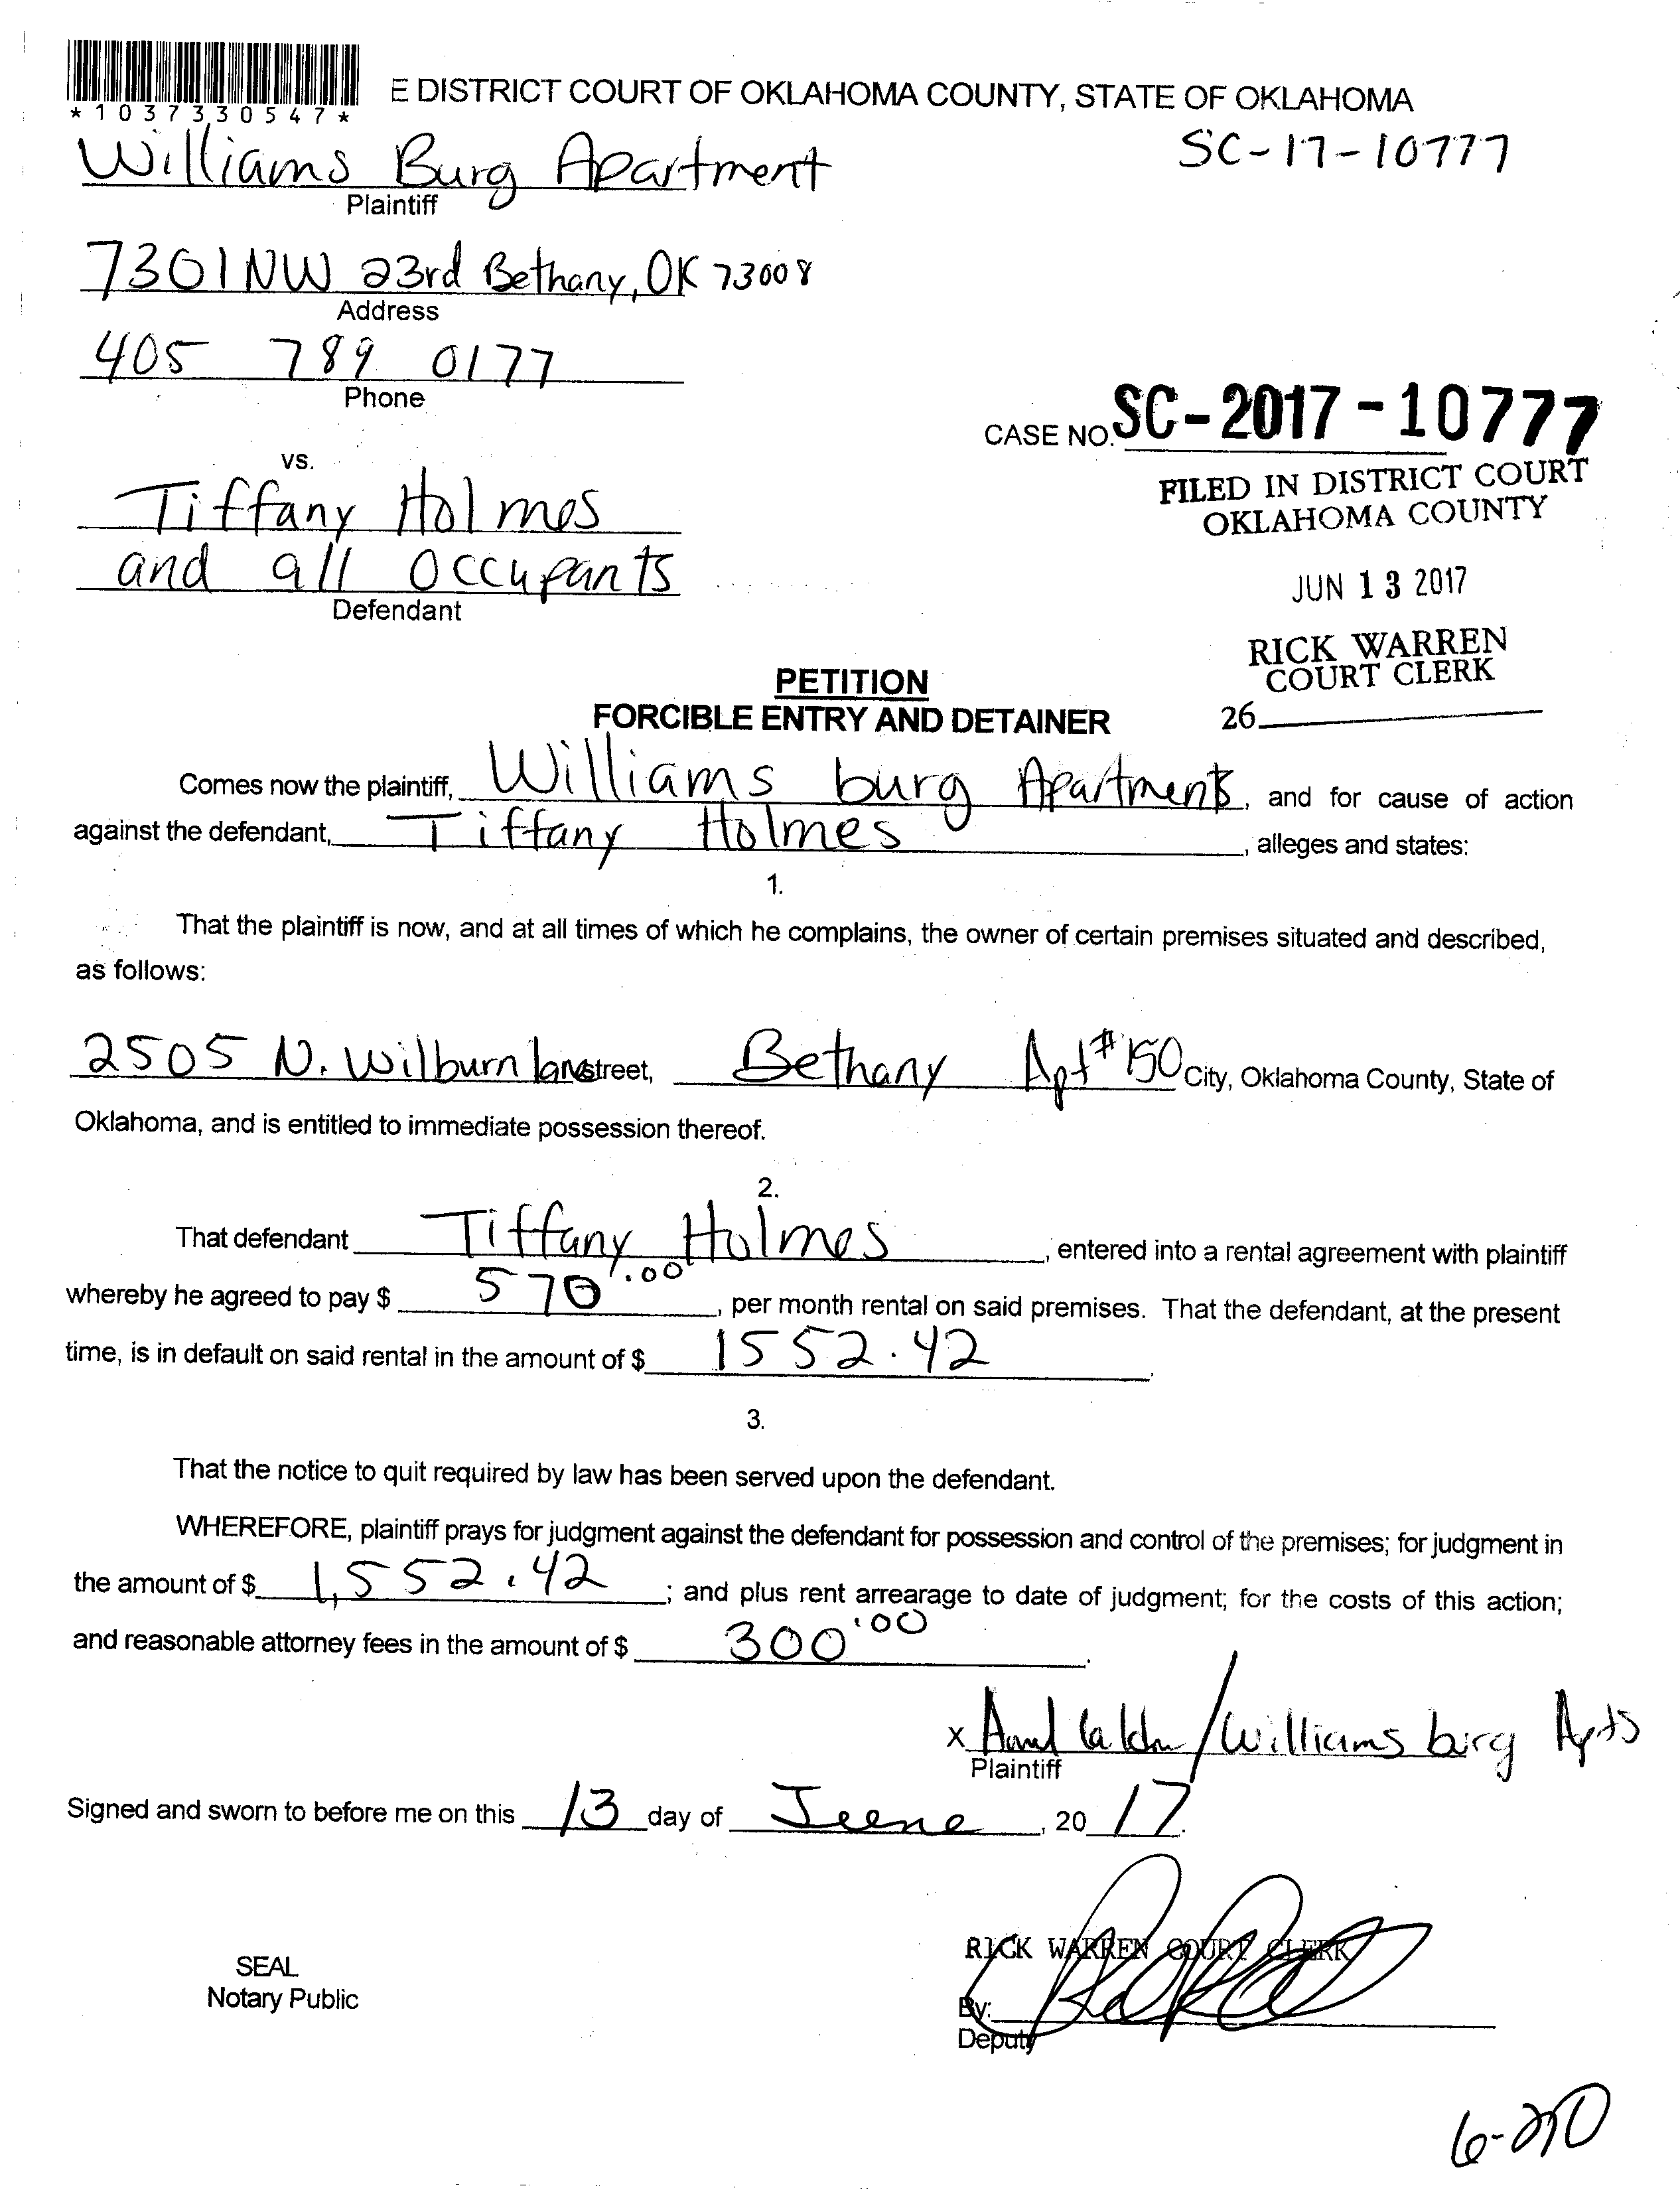 *1037330547*
E DISTRICT COURT OF OKLAHOMA COUNTY, STATE OF OKLAHOMA
Williams Burg Apartment
SC-17-10777
Plaintiff
7301 NW 23rd Bethany, OK 73008
Address
405 789 0177
Phone
CASE NO. SC-2017-10777
vs.
FILED IN DISTRICT COURT
OKLAHOMA COUNTY
Tiffany Holmes
and all Occupants
Defendant
JUN 13 2017
RICK WARREN
COURT CLERK
26
PETITION
FORCIBLE ENTRY AND DETAINER
Comes now the plaintiff, Williams burg Apartments, and for cause of action
against the defendant, Tiffany Holmes, alleges and states:
1.
That the plaintiff is now, and at all times of which he complains, the owner of certain premises situated and described,
as follows:
2505 N. Wilburn lane street, Bethany Apt #150 City, Oklahoma County, State of
Oklahoma, and is entitled to immediate possession thereof.
2.
That defendant Tiffany Holmes, entered into a rental agreement with plaintiff
whereby he agreed to pay $ 570.00, per month rental on said premises. That the defendant, at the present
time, is in default on said rental in the amount of $ 1552.42.
3.
That the notice to quit required by law has been served upon the defendant.
WHEREFORE, plaintiff prays for judgment against the defendant for possession and control of the premises; for judgment in
the amount of $ 1,552.42; and plus rent arrearage to date of judgment; for the costs of this action;
and reasonable attorney fees in the amount of $ 300.00.
x /Williams burg Apts
Plaintiff
Signed and sworn to before me on this 13 day of June, 2017.
RICK WARREN COURT CLERK
SEAL
Notary Public
By:
Deputy